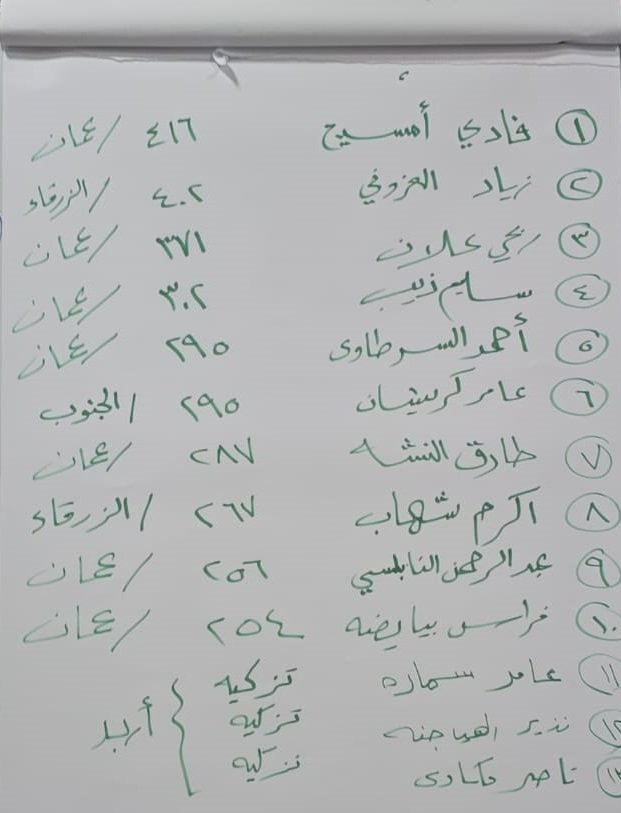 ١ فادي أمسيح ٤١٦ / عمان
٢ زياد العزوفي ٤٠٢ / الزرقاء
٣ ربحي علان ٣٧١ / عمان
٤ سليم زبيب ٣٠٢ / عمان
٥ أحمد السرطاوى ٢٩٥ / عمان
٦ عامر كريشان ٢٩٥ / الجنوب
٧ طارق النتشه ٢٨٧ / عمان
٨ اكرم شهاب ٢٦٧ / الزرقاء
٩ عبد الرحمن النابلسي ٢٥٦ / عمان
١٠ فراس بيايضه ٢٥٤ / عمان
١١ عامر سماره تزكيه
١٢ نذير الهباجنه تزكيه أربد
١٣ ناصر تزكيه